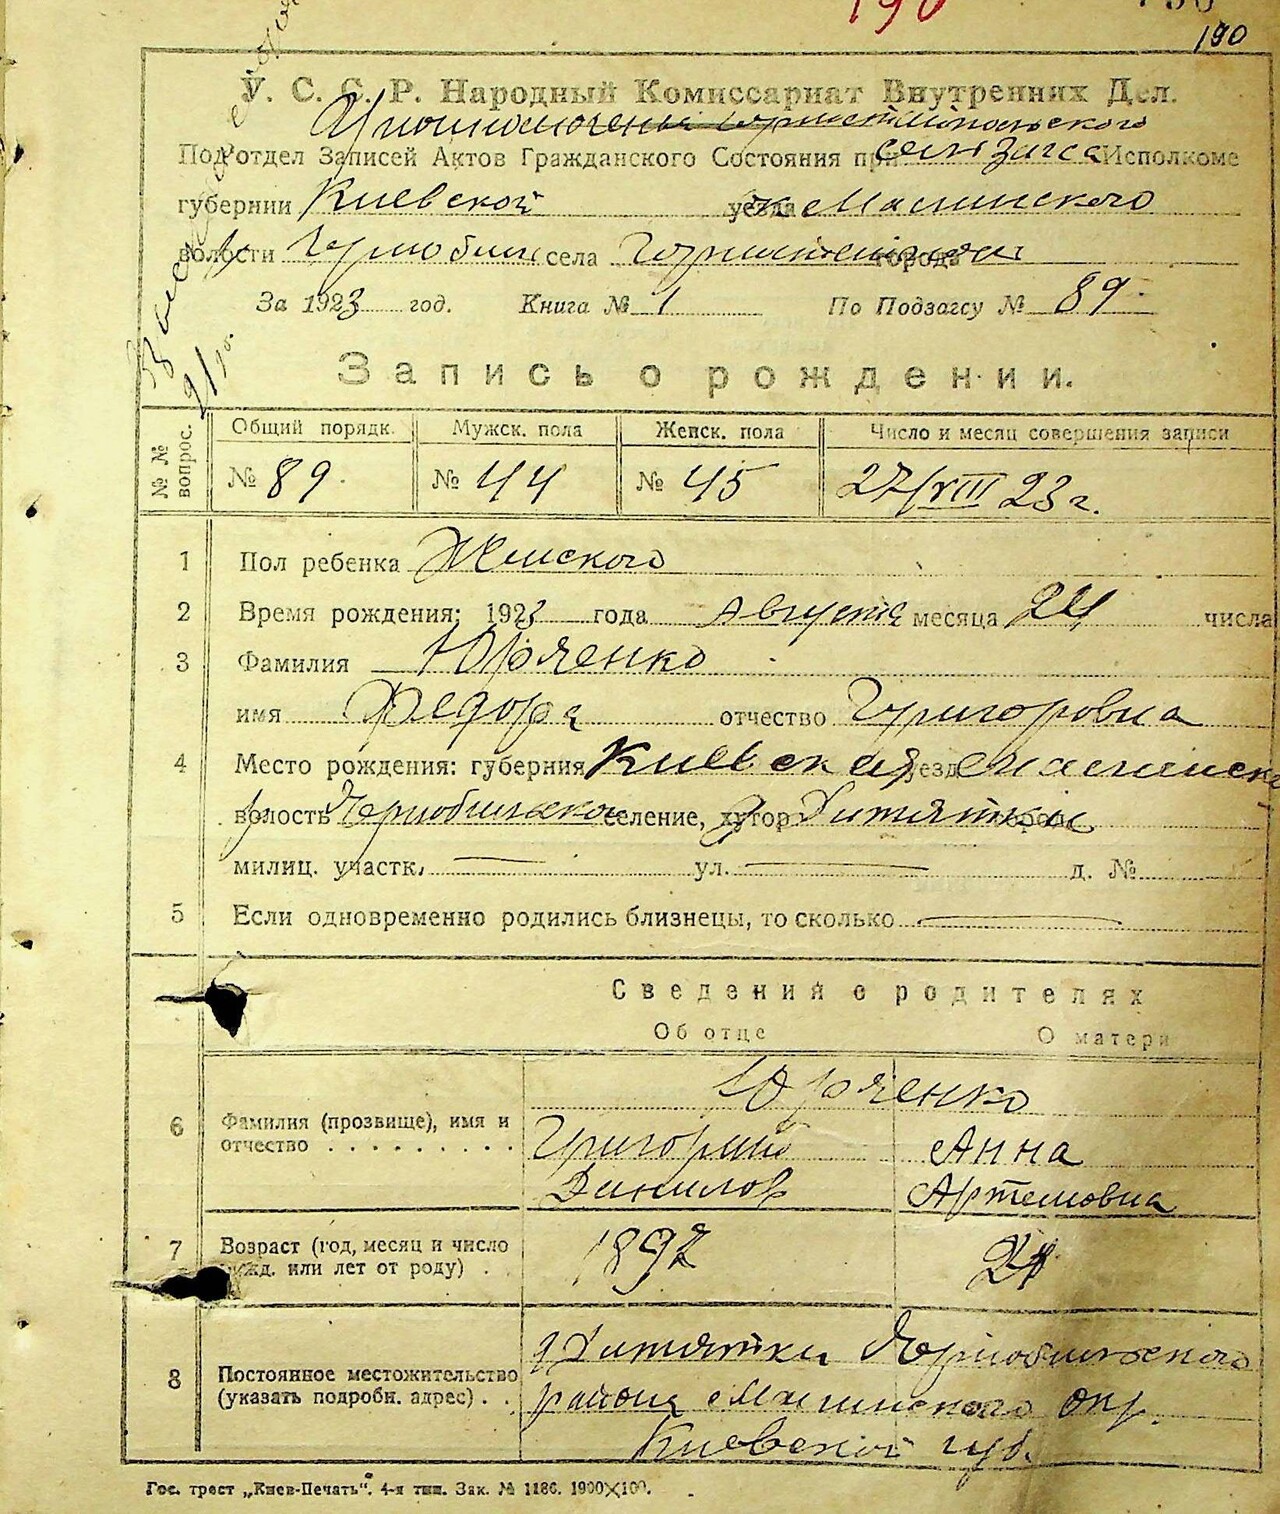 190
190
У. С. С. Р. Народный Комиссариат Внутренних Дел.
Подотдел Записей Актов Гражданского Состояния при сельзагса Исполкоме
губернии Киевской уезда Малинского
волости Чернобыл села города
За 1923 год. Книга № 1 По Подзагсу № 89.
Запись о рождении.
№ № вопрос. Общий порядк. Мужск. пола Женск. пола Число и месяц совершения записи
№ 89. № 44 № 45 27/VIII 23 г.
1 Пол ребенка Женского
2 Время рождения: 1923 года Августа месяца 24 числа
3 Фамилия Юрченко
имя Федора отчество Григоровна
4 Место рождения: губерния Киевская уезд Малинск
волость Чернобыльской селение, хутор Дитятки город
милиц. участк. — ул. — д. №
5 Если одновременно родились близнецы, то сколько —
Сведения о родителях
Об отце О матери
Юрченко
6 Фамилия (прозвище), имя и Григорий Анна
отчество . . . . . . . . . Данилов Артемовна
7 Возраст (год, месяц и число 1892
рожд. или лет от роду) . .
8 Постоянное местожительство д Дитятки Чернобыльского
(указать подробн. адрес) . . района Малинского окр.
Киевской губ.
Гос. трест „Киев-Печать". 4-я тип. Зак. № 1186. 1900×100.